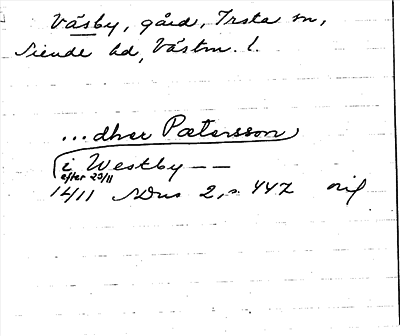 Väsby, gård, Irsta sn,
Siende hd, Västm. l.
...dher Pætersson
i Westby --
efter 29/11
14/11 SDns 2, s. 442 orig